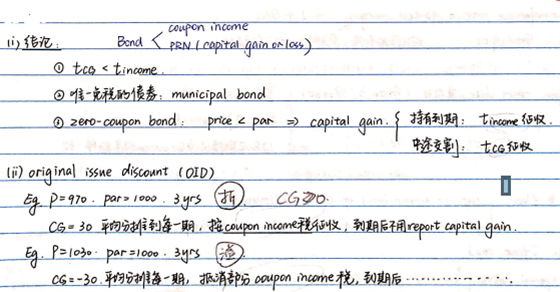 (i) 结论: Bond < coupon income
PRN (capital gain or loss)
① tCG < tincome.
② 唯一免税的债券: municipal bond
③ zero-coupon bond: price < par ⇒ capital gain. { 持有到期: tincome 征收.
中途交割: tCG 征收
(ii) original issue discount (OID)
Eg. P=970. par=1000. 3yrs 折 CG≥0.
CG=30 平均分摊到每一期, 按coupon income税征收, 到期后不用report capital gain.
Eg. P=1030. par=1000. 3yrs 溢
CG=-30. 平均分摊每一期, 抵消部分 coupon income 税, 到期后…………